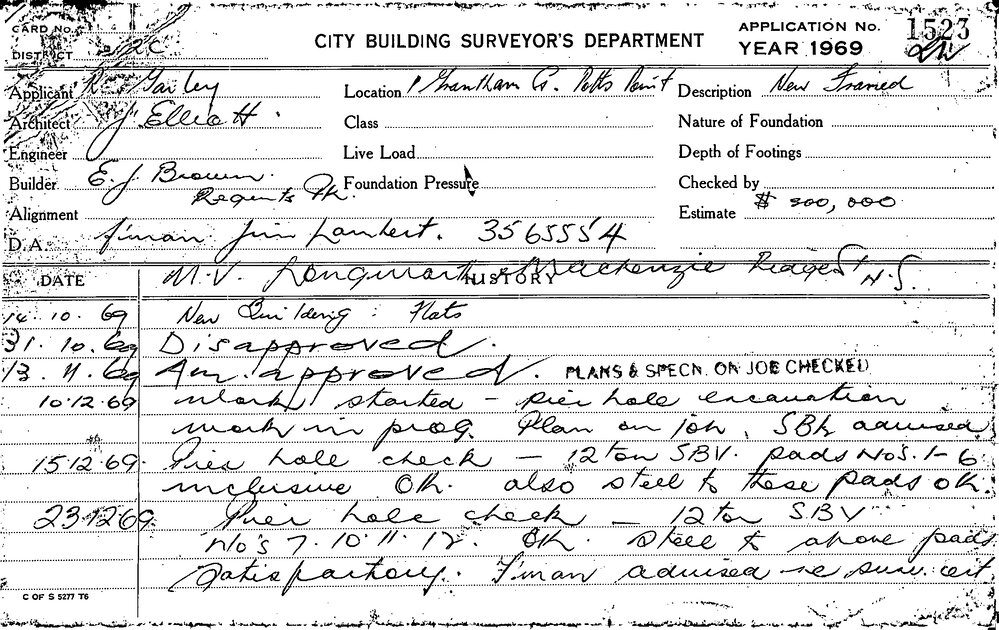 CARD No.
DISTRICT 2C
CITY BUILDING SURVEYOR'S DEPARTMENT
APPLICATION No. 1523
YEAR 1969
Applicant
Location 1 Grantham St. Potts Point
Description New Framed
Architect J. Elliott
Class
Nature of Foundation
Engineer
Live Load
Depth of Footings
Builder E. J. Brown.
Regents Pk.
Foundation Pressure
Checked by
Alignment
Estimate $ 800,000
D.A. f'man Jim Lambert. 3565554
DATE
HISTORY
M.V. Longmark & Mackenzie Ridge St N.S.
14.10.69 New Building : Flats
31.10.69 Disapproved.
13.11.69 Am. approved. PLANS & SPECN. ON JOB CHECKED
10.12.69 Work started - pier hole excavation
work in prog. Plan on job, SBk advised
15.12.69. Pier hole check - 12 ton SBV. pads No's. 1-6
inclusive OK. also steel to these pads ok.
23.12.69. Pier hole check - 12 ton SBV
No's 7. 10. 11. 12. OK. Steel to above pads
satisfactory. F'man advised re surv. cert
C OF S 5277 T6